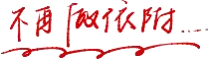 不再「故依附....